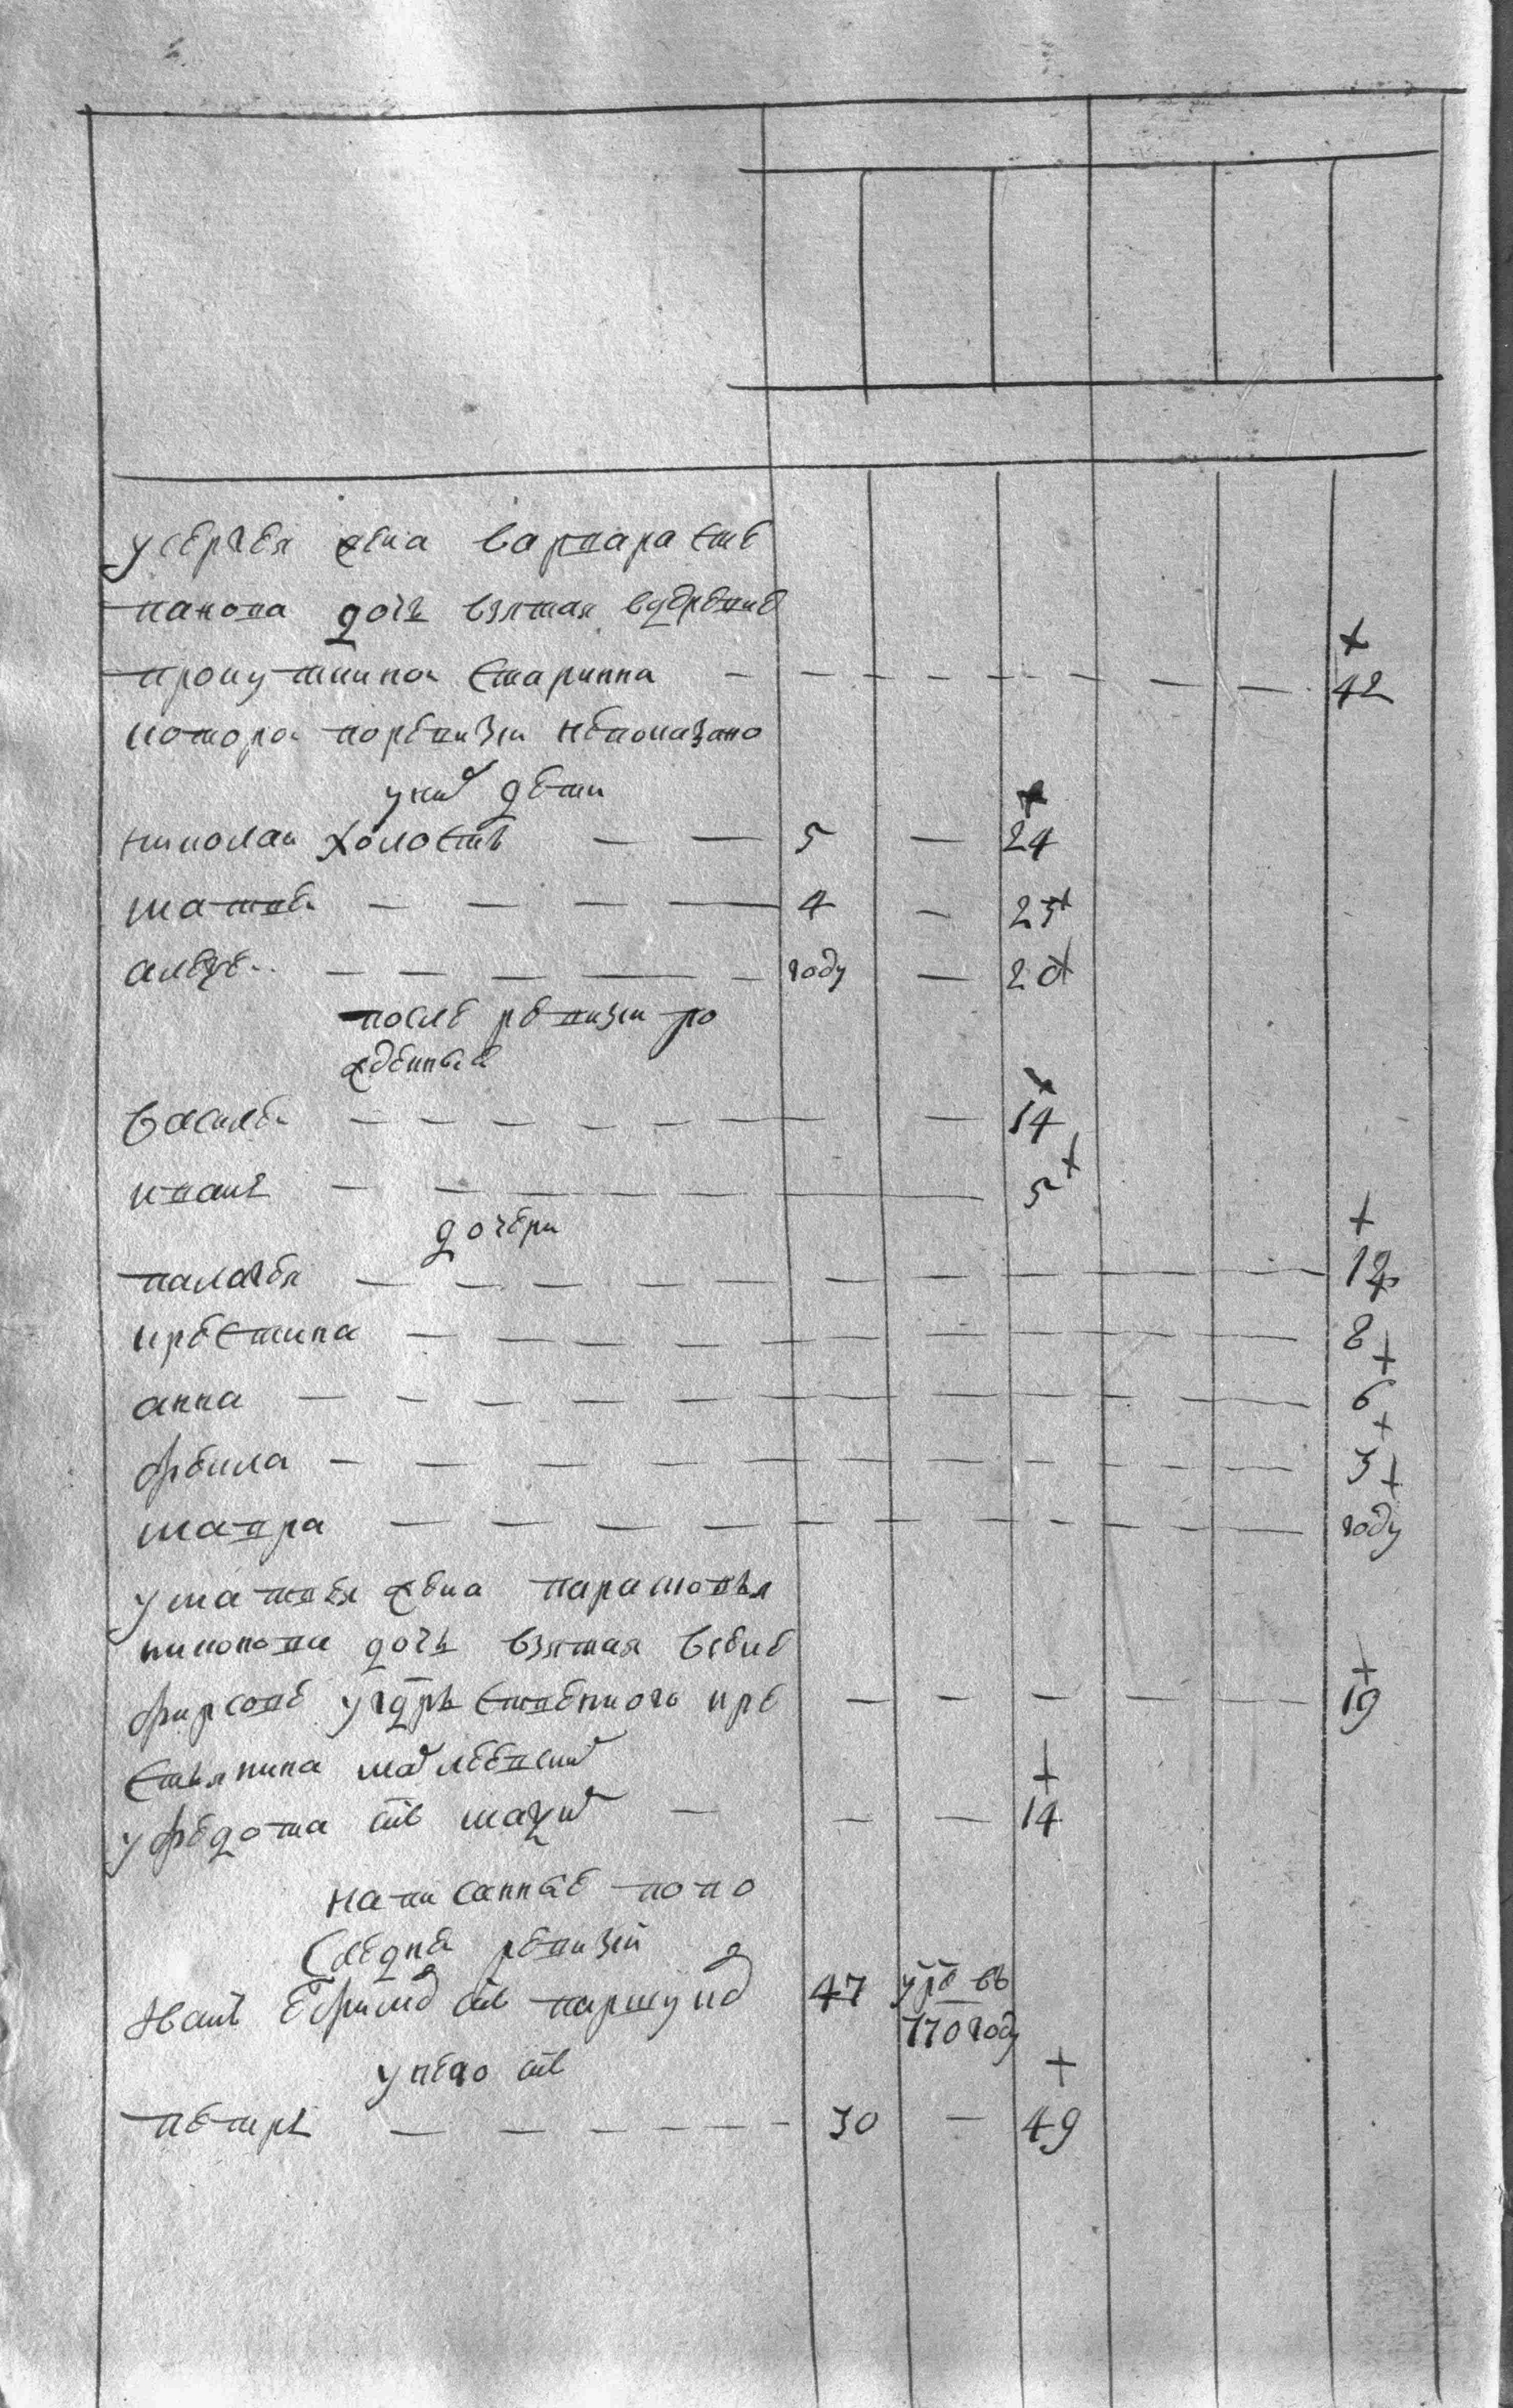 у сергея жена варвара сте
панова дочь взятая вдеревне
прокуткиной старинна — — — — — — — — + 42
которой поревизии непоказано
уних дети
николай холостъ — — 5 — + 24
матвей — — — — 4 — 23 +
алексей — — — — — году — 20 +
после ревизии ро
жденныя
василей — — — — — — — + 14
иванъ — — — — — — — 5 +
дочери
палагея — — — — — — — — — — + 12
крестина — — — — — — — — — — 8 +
анна — — — — — — — — — — — 6 +
фекла — — — — — — — — — — — 3 +
мавра — — — — — — — — — — — году
у матвея жена парасковья
никонова дочь взятая вселе
фирсове у гдрственного кре — — — — — + 19
стьянина
у федота сنъ — — — + 14
написанные попо
следней ревизии
Иванъ Ефимов снъ паршуков 47 умре въ
770 году
унего снъ
петръ — — — — — — 30 — + 49